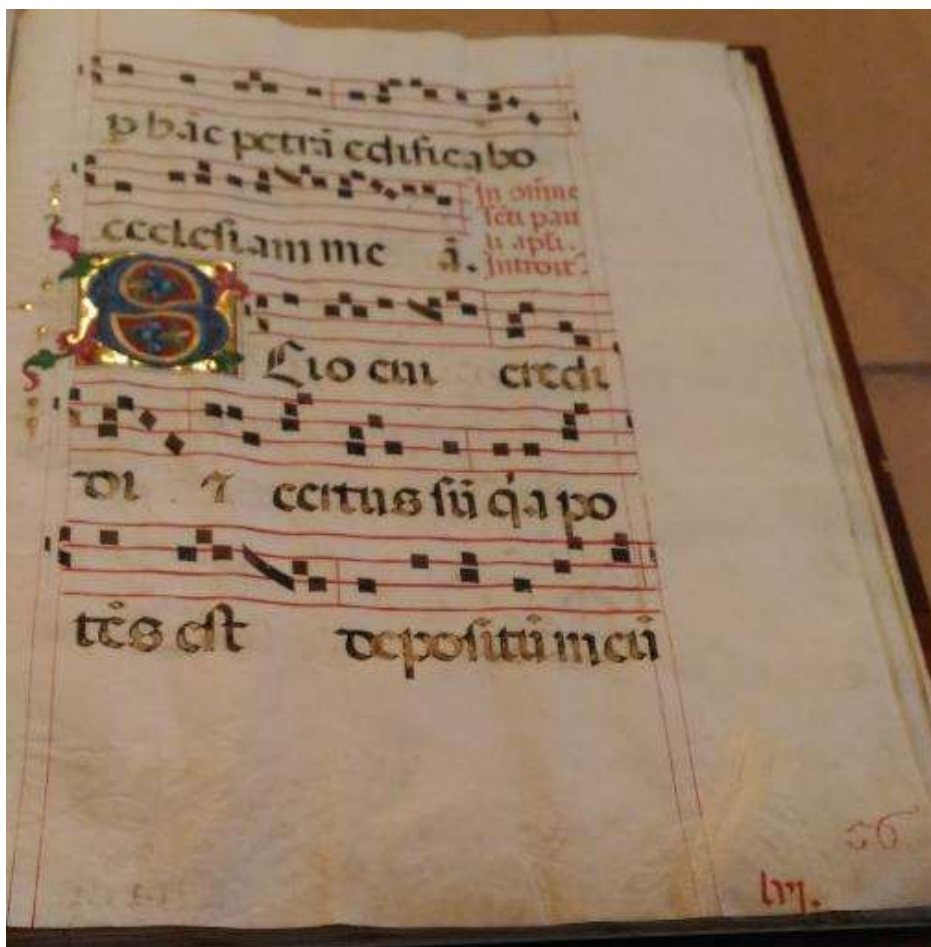 p hac petrā edificabo
ecclesiam me ā.
In
scti pau
li apli.
Introit
SCio cui credi
di ⁊ certus sū qa po
tēs est depositū meū
56
lvj.